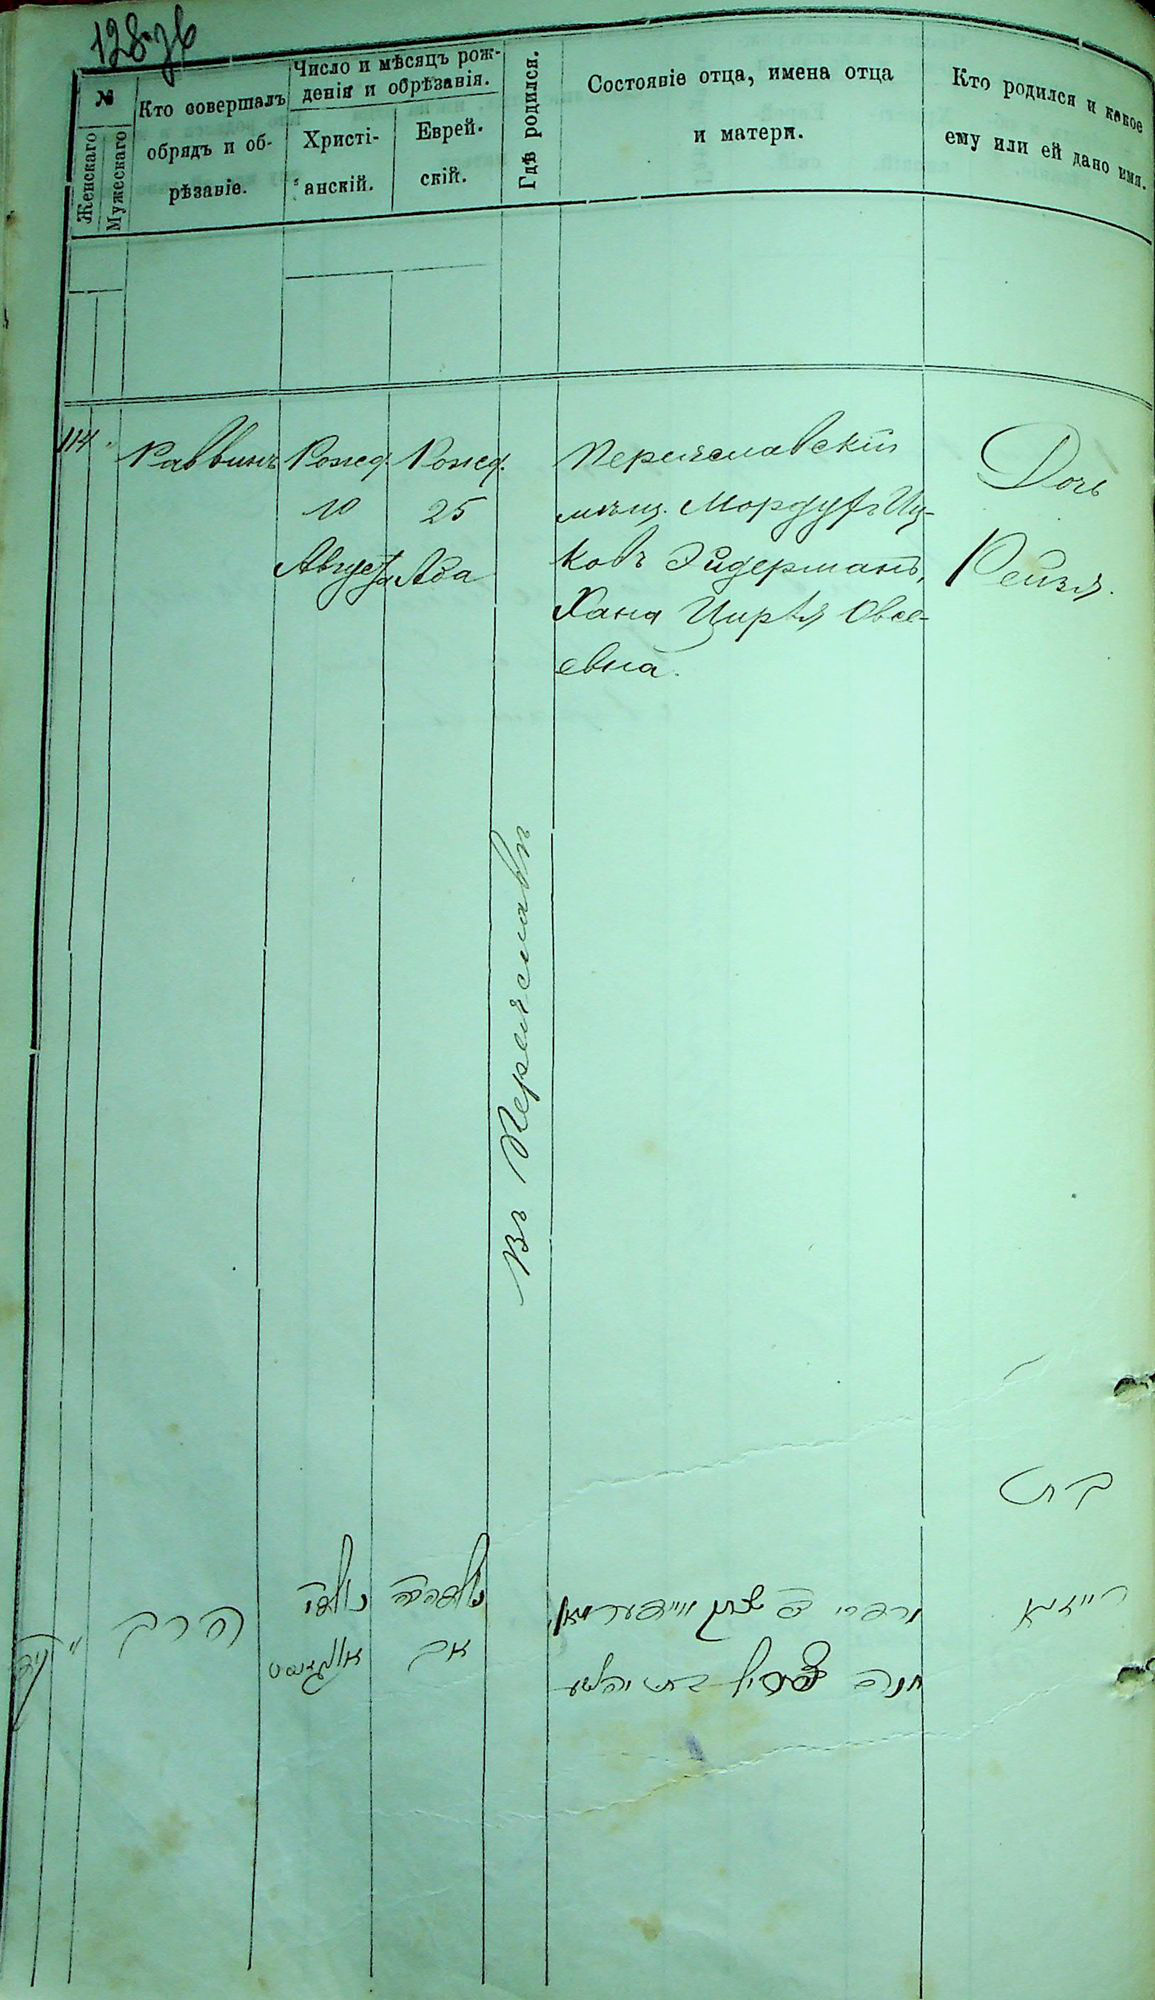 128 зв
№
Женскаго
Мужескаго
Кто совершалъ
обрядъ и об-
рѣзаніе.
Число и мѣсяцъ рож-
денія и обрѣзанія.
Христі-
анскій.
Еврей-
скій.
Гдѣ родился.
Состояніе отца, имена отца
и матери.
Кто родился и какое
ему или ей дано имя.
114 "
Раввинъ
Рожд.
10
Августа
Рожд.
25
Аба
Въ Переяславѣ
Переяславскій
мѣщ. Мордухъ Иц-
ковъ Эйдерманъ,
Хана Цирля Овсе-
евна.
Дочь
Рейзя.
הרב
נולדה
אויגוסט
נולדה
אב
מרדכי
חנה בת יהושע
בת
רייזא